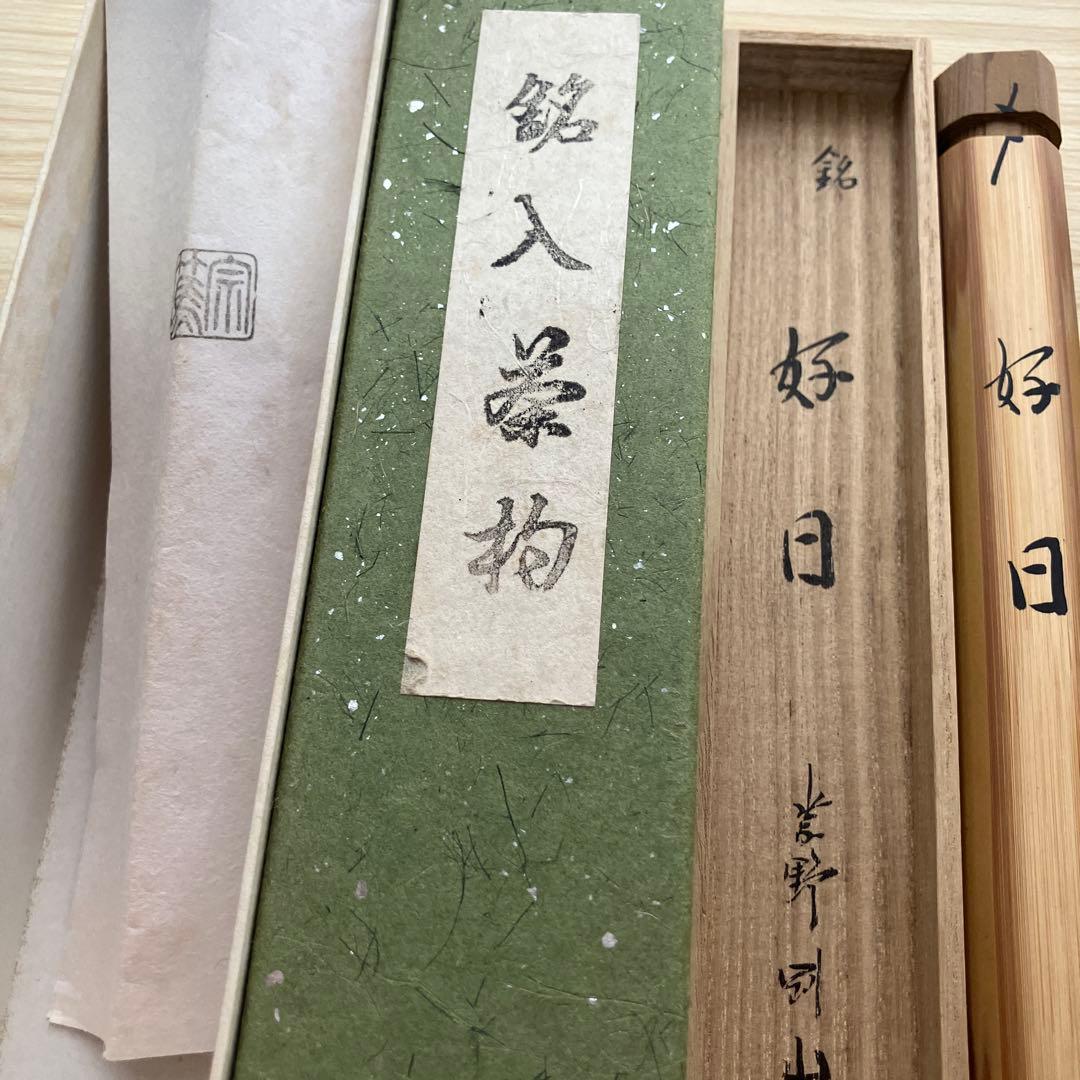 〆
好日
銘
好日
紫野
銘入茶杓
宗